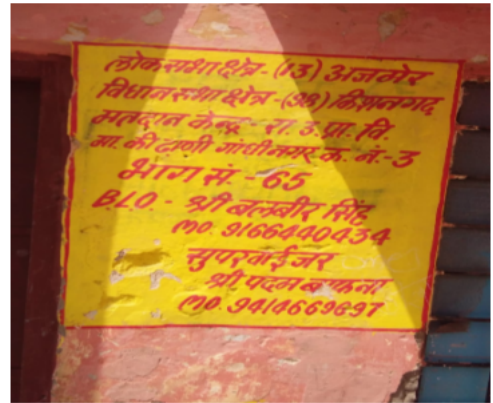 लोक सभा क्षेत्र - (13) अजमेर
विधान सभा क्षेत्र - (98) किशनगढ़
मतदान केन्द्र - रा. उ. प्रा. वि.
मा. की ढाणी गांधीनगर क. नं.-3
भाग सं. - 65
B.L.O. - श्री बलबीर सिंह
mo. 9166440434
सुपरवाईजर
श्री पदम
mo. 9414669697